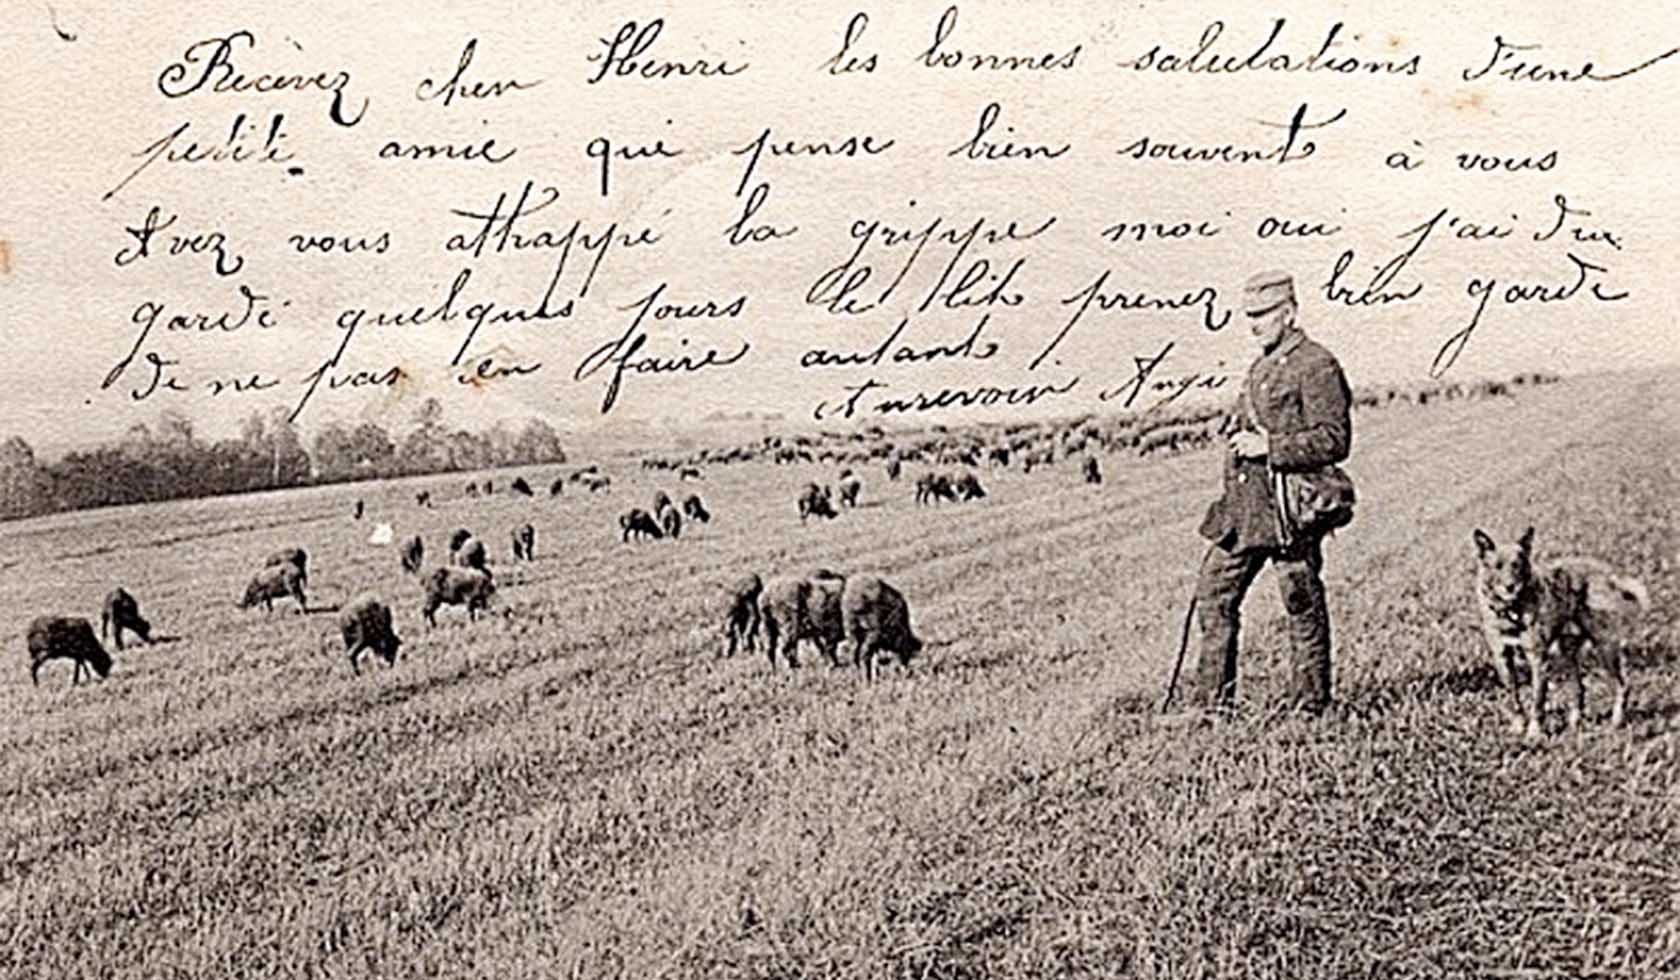 Recevez cher Henri les bonnes salutations d'une
petite amie qui pense bien souvent à vous
Avez vous attrappé la grippe moi oui j'ai du
garde quelques jours le lit prenez bien garde
de ne pas en faire autant
Aurevoir